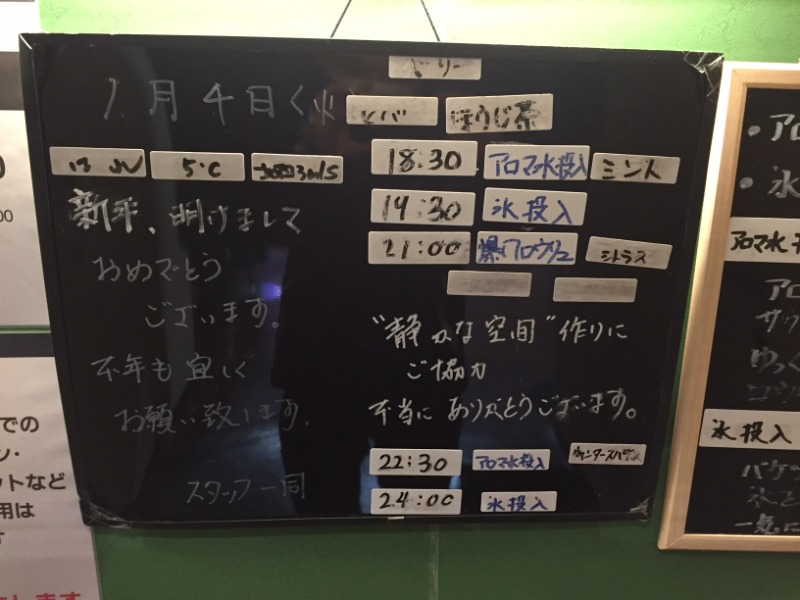 ベリー
1月4日(火
ヒバ ほうじ茶
5℃
18:30 アロマ水投入 ミント
19:30 氷投入
21:00 爆アロウリュ シトラス
新年、明けまして
おめでとう
ございます。
本年も宜しく
お願い致します。
スタッフ一同
"静かな空間"作りに
ご協力
本当にありがとうございます。
22:30 アロマ水投入
24:00 氷投入
・アロ
・氷
アロマ水
アロ
サウ
ゆっく
氷投入
バケツ
氷を
一気に
00
での
ン・
ットなど
用は
す
します